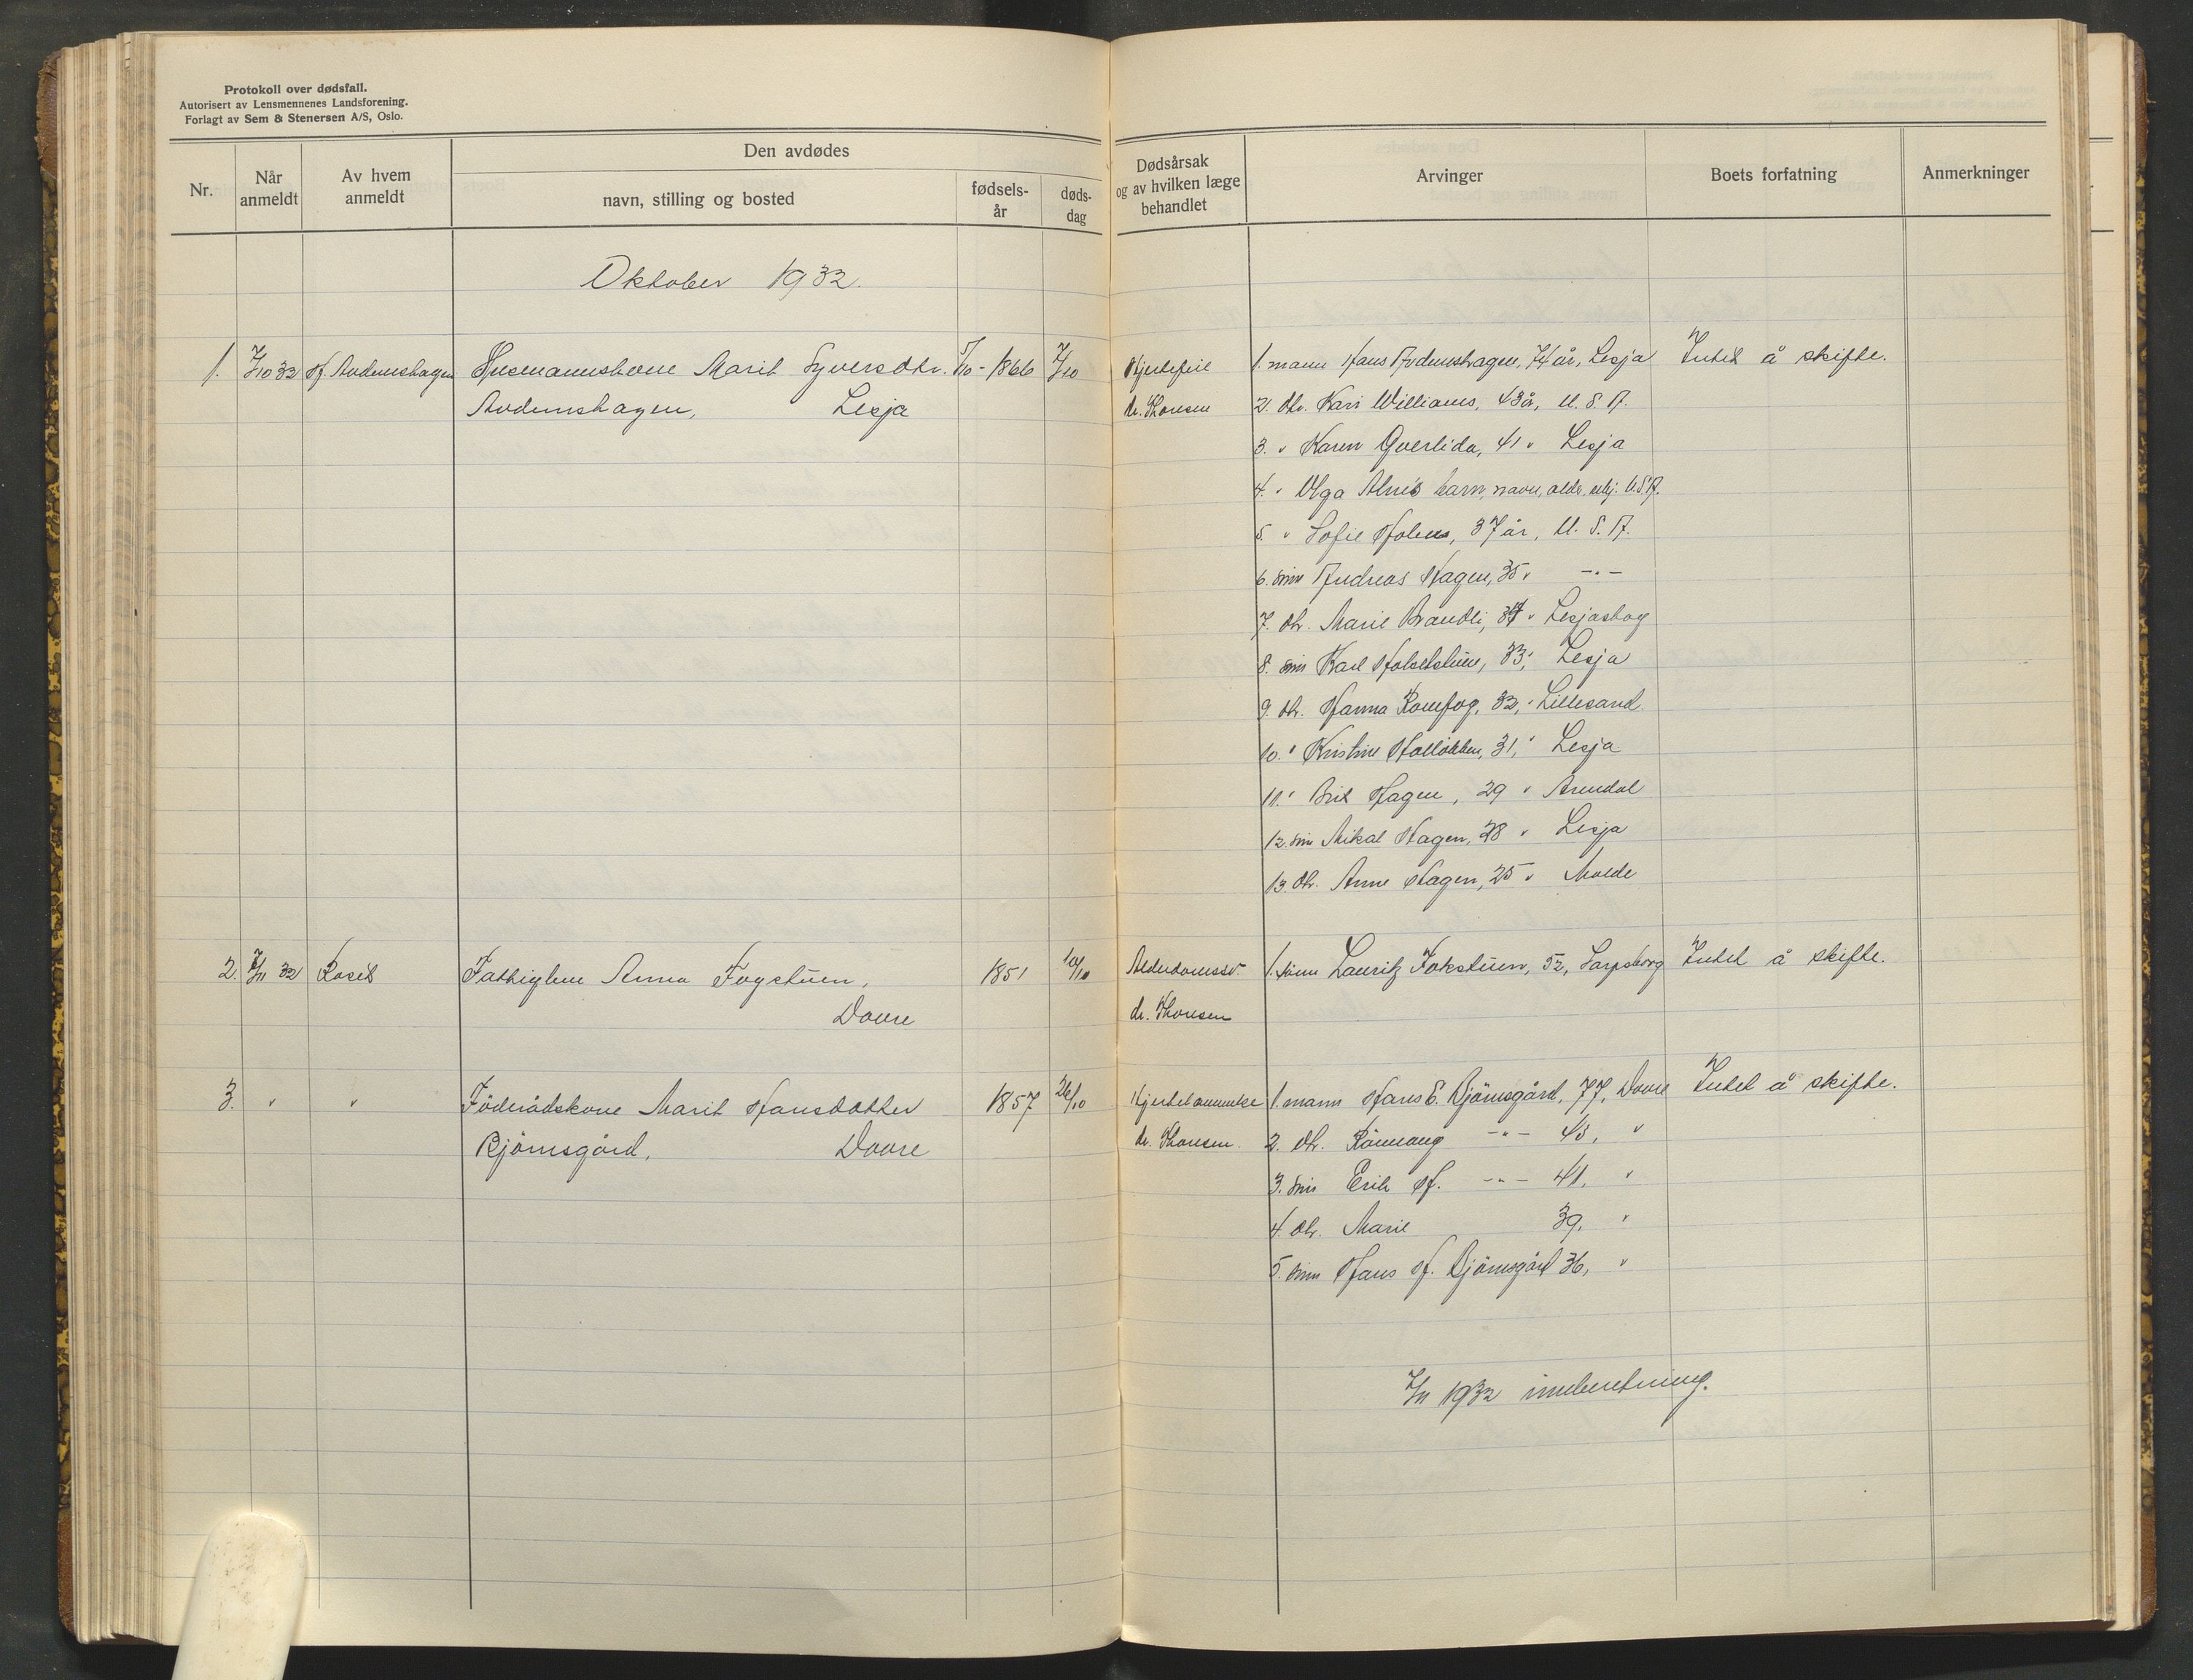 Protokoll over dødsfall.
Autorisert av Lensmennenes Landsforening.
Forlagt av Sem & Stenersen A/S, Oslo.
Nr.
Når anmeldt
Av hvem anmeldt
Den avdødes
navn, stilling og bosted
fødsels-
år
døds-
dag
Dødsårsak
og av hvilken læge
behandlet
Arvinger
Boets forfatning
Anmerkninger
Oktober 1932.
1. 7/10 32 H. Avdemshagen Husmannskone Marit Syversdtr. 7/10-1866 7/10 Hjertefeil 1. mann Hans Avdemshagen, 74 år, Lesja Intet å skifte.
Avdemshagen, Lesja dr. Thonsen 2. dtr. Kari Williams, 43 år, U. S. A.
3. " Karen Qverlida, 41 " Lesja
4. " Olga Alnes barn, navn, alder, ubj. U.S.A.
5. " Sofie Holum, 37 år, U. S. A.
6. sønn Andreas Hagen, 35 " -"-
7. dtr. Marie Brandli, 34 " Lesjaskog
8. sønn Karl Holsetstuen, 33, " Lesja
9. dtr. Hanna Romfog, 32, " Lillesand.
10. " Kristine Halløkken, 31, " Lesja
11. " Brit Hagen, 29 " Arendal
12. sønn Mikal Hagen, 28 " Lesja
13. dtr. Anne Hagen, 25 " Molde
2. 7/11 32 Roset Fattiglem Anna Fogstuen, 1851 10/10 Alderdomssv. 1. sønn Lauritz Fokstuen, 52, Sarpsborg Intet å skifte.
Dovre dr. Thonsen
3. " " Föderådskone Marit Hansdatter 1857 26/10 Hjertelammelse 1. mann Hans E. Bjömsgård, 77, Dovre Intet å skifte.
Bjömsgård, Dovre dr. Thonsen. 2. dtr. Rönnaug -"- 43, "
3. sønn Erik H. -"- 41, "
4. dtr. Marie 39, "
5. sønn Hans H. Bjömsgård 36, "
7/11 1932 innberetning.